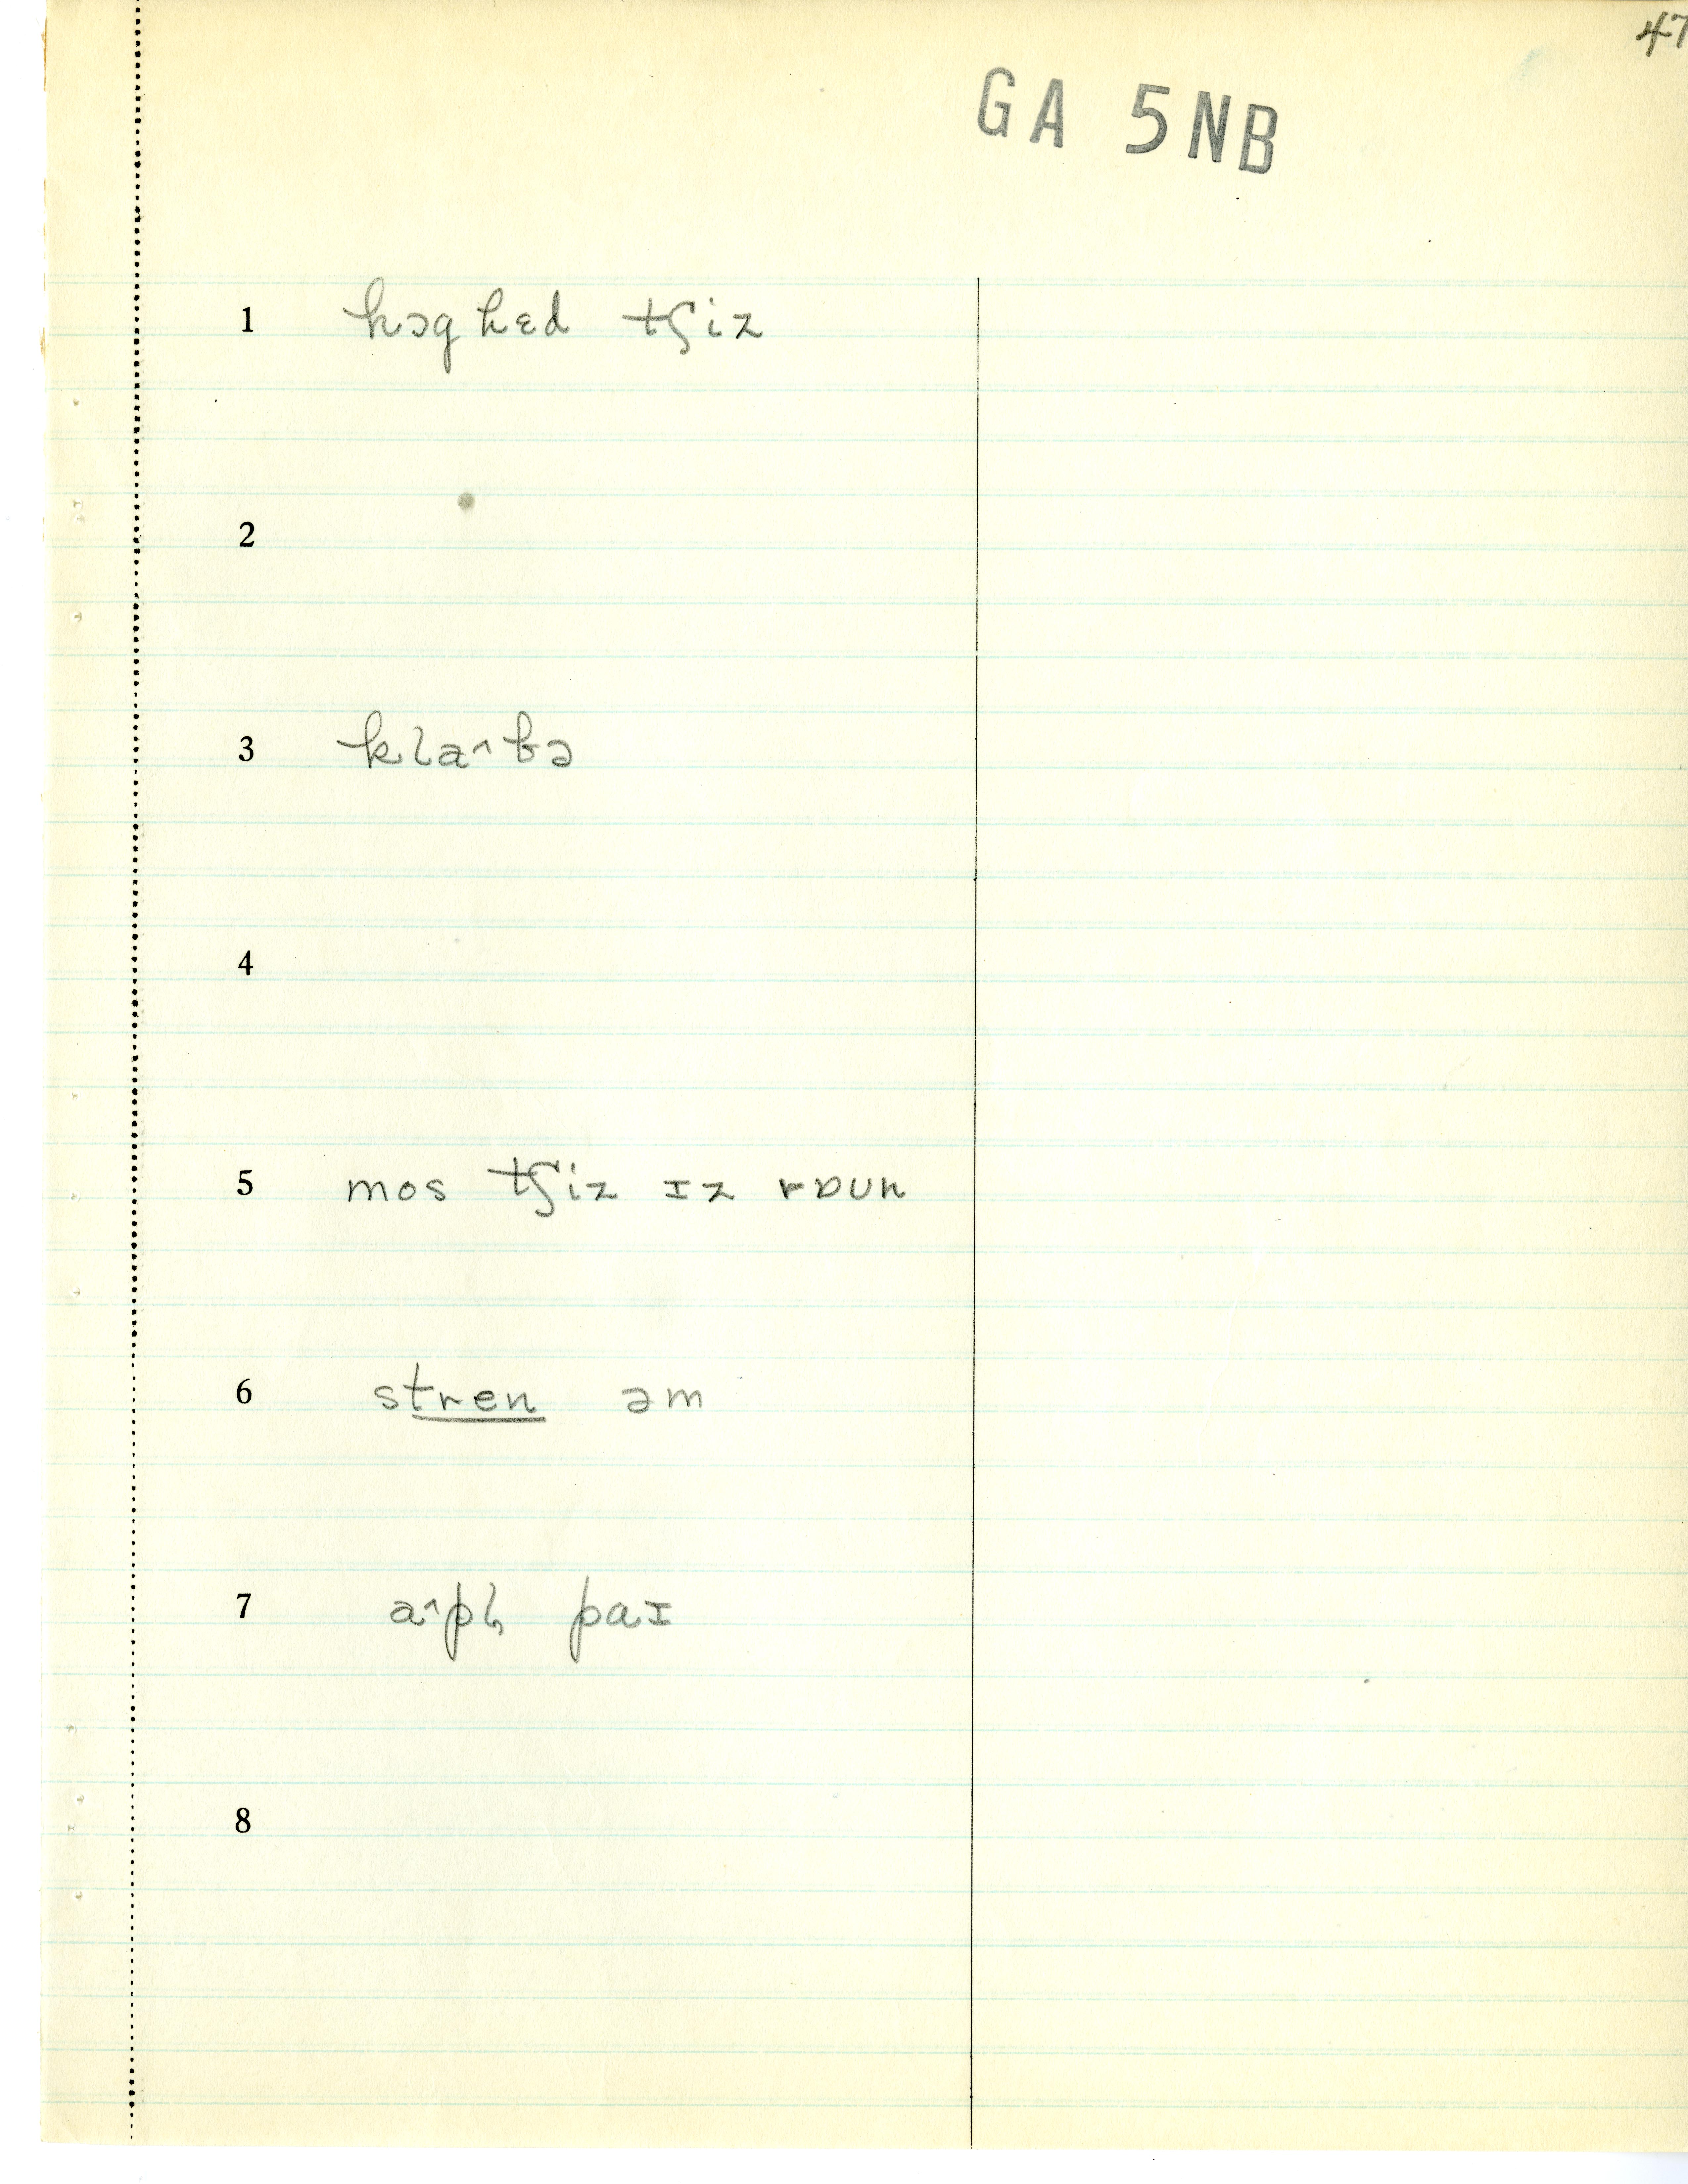 47
GA 5NB
1 hɔghɛd tʃiz
2
3 klaˆbə
4
5 mos tʃiz ɪz rɒun
6 stren əm
7 aˆpl̩ paɪ
8